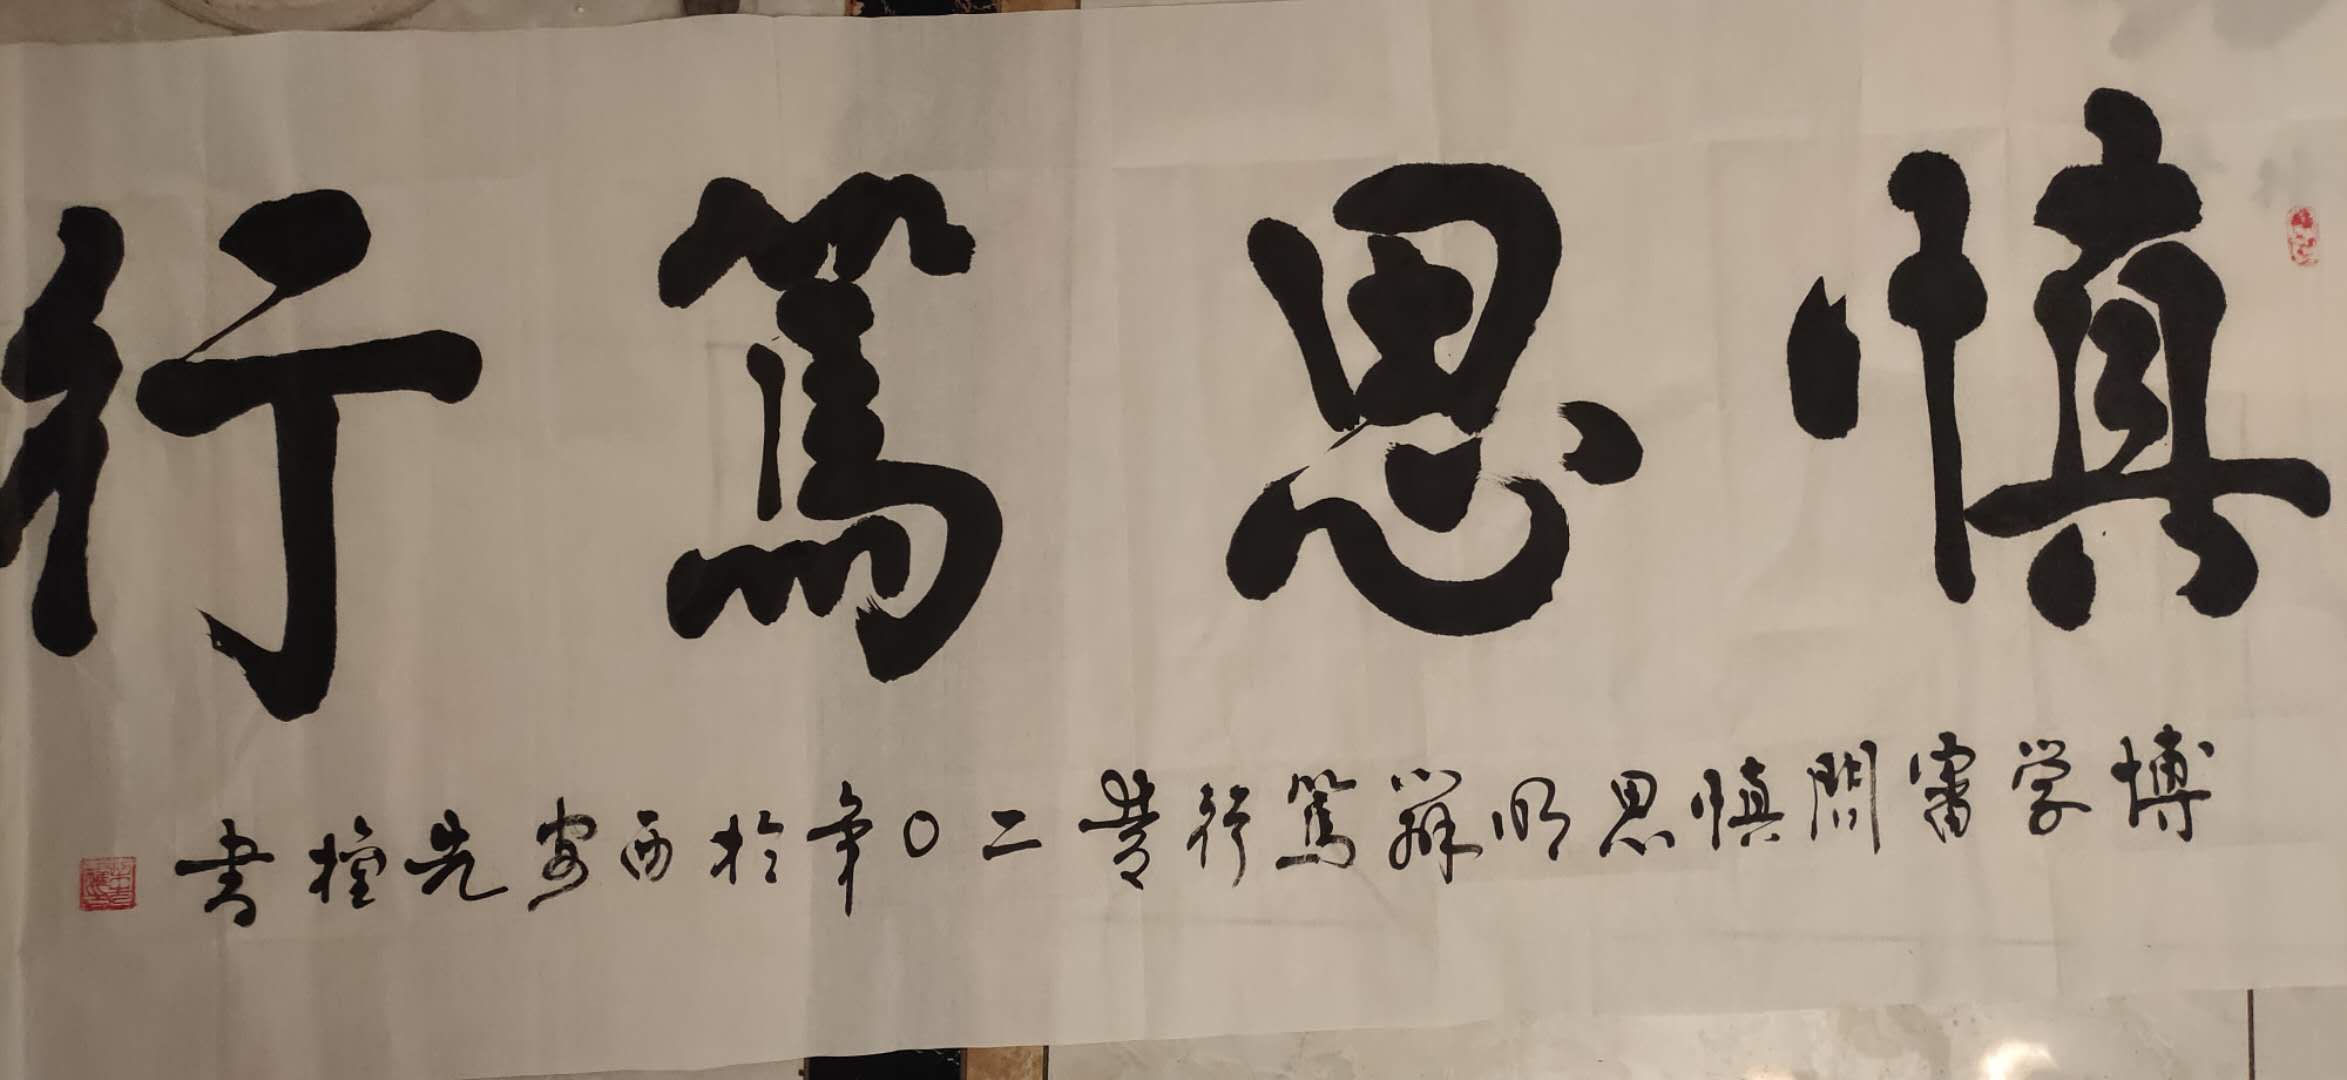 慎思篤行
博学審問慎思明辨篤行 二〇年於西安先橦書